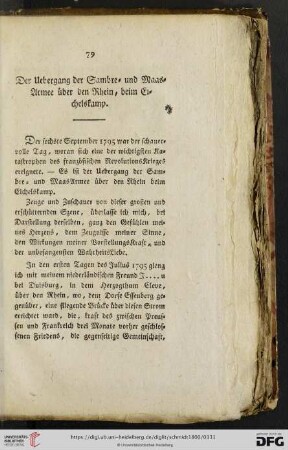 79
Der Uebergang der Sambre- und Maas-
Armee über den Rhein, beim Ei-
chelskamp.
Der sechste September 1795 war der schauer-
volle Tag, woran sich eine der wichtigsten Ka-
tastrophen des französischen Revolutionskrieges
ereignete. — Es ist der Uebergang der Sam-
bre- und MaasArmee über den Rhein beim
Eichelskamp.
Zeuge und Zuschauer von dieser großen und
erschütternden Szene, überlasse ich mich, bei
Darstellung derselben, ganz den Gefühlen mei-
nes Herzens, dem Zeugnisse meiner Sinne,
den Wirkungen meiner Vorstellungskraft, und
der unbefangensten Wahrheitsliebe.
In den ersten Tagen des Julius 1795 gieng
ich mit meinem niederländischen Freund J....s
bei Duisburg, in dem Herzogthum Cleve,
über den Rhein, wo, dem Dorfe Essenberg ge-
genüber, eine fliegende Brücke über diesen Strom
errichtet ward, die, kraft des zwischen Preus-
sen und Frankreich drei Monate vorher geschlos-
senen Friedens, die gegenseitige Gemeinschaft,
UNIVERSITÄTS-
BIBLIOTHEK
HEIDELBERG
https://digi.ub.uni-heidelberg.de/diglit/schmidt1800/0131
© Universitätsbibliothek Heidelberg
gefördert durch die
DFG